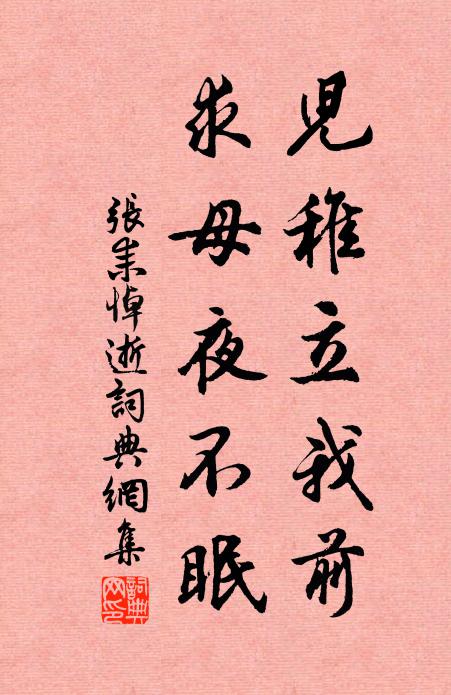 兒稚立我前
求母夜不眠
張耒悼逝詞典網集
詞典网印